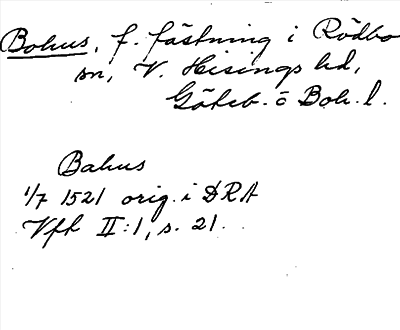 Bohus, f. fästning i Rödbo
sn, V. Hisings hd,
Göteb. o Boh. l.
Bahus
1/7 1521 orig. i DRA
Vfh II:1, s. 21.